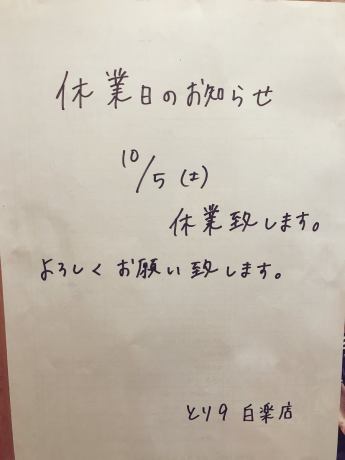 休業日のお知らせ
10/5(土)
休業致します。
よろしくお願い致します。
とり9 白楽店